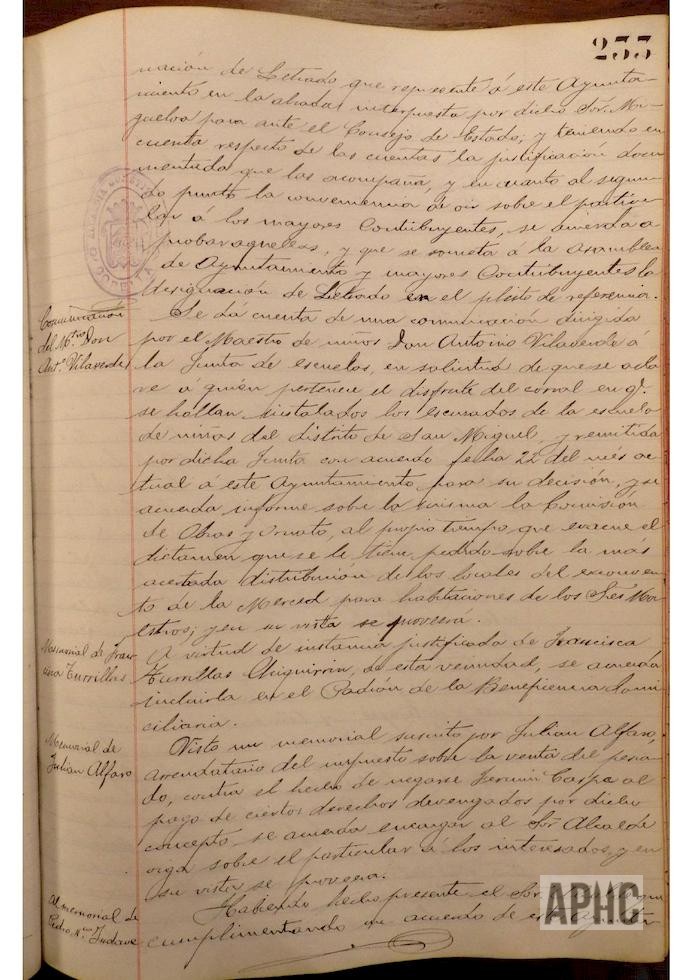 233
nación de Letrado que represente á este Ayunta-
miento en la alzada interpuesta por dicho Sor. Mi-
guelva para ante el Consejo de Estado; y teniendo en
cuenta respecto de las cuentas la justificación docu
mentada que las acompaña, y en cuanto al segun-
do punto la conveniencia de oir sobre el particu-
lar á los mayores Contribuyentes, se acuerda a
probar aquellas, y que se someta á la Asamblea
de Ayuntamiento y mayores Contribuyentes la
designación de Letrado en el pleito de referencia.
Comunicación
del Mtro Don
Ant.º Vilaverde
Se da cuenta de una comunicación dirigida
por el Maestro de niños Don Antonio Vilaverde á
la Junta de escuelas, en solicitud de que se acla
re á quién pertenece el disfrute del corral en qe.
se hallan instalados los escusados de la escuela
de niñas del distrito de San Miguel, y remitida
por dicha Junta con acuerdo fecha 22 del mes ac
tual á este Ayuntamiento para su decisión, y se
acuerda informe sobre la misma la Comisión
de Obras y Ornato, al propio tiempo que evacue el
dictamen que se le tiene pedido sobre la más
acertada distribución de los locales del exconven
to de la Merced para habitaciones de los Sres Ma
estros; y en su vista se proveera.
Memorial de Fran
cisca Turrillas
A virtud de instancia justificada de Francisca
Turrillas Chiquirrin, de esta vecindad, se acuerda
incluirla en el Padrón de la Beneficencia domi
ciliaria.
Memorial de
Julian Alfaro
Visto un memorial suscrito por Julian Alfaro,
arrendatario del impuesto sobre la venta del pesca-
do, contra el hecho de negarse Fermin Carpa al
pago de ciertos derechos devengados por dicho
concepto, se acuerda encargar al Sor Alcalde
oiga sobre el particular á los interesados, y en
su vista se proveera.
al memorial de
Pedro N.
Habiendo hecho presente el Sor.
cumplimentando un acuerdo de este Ayunta-
APHC